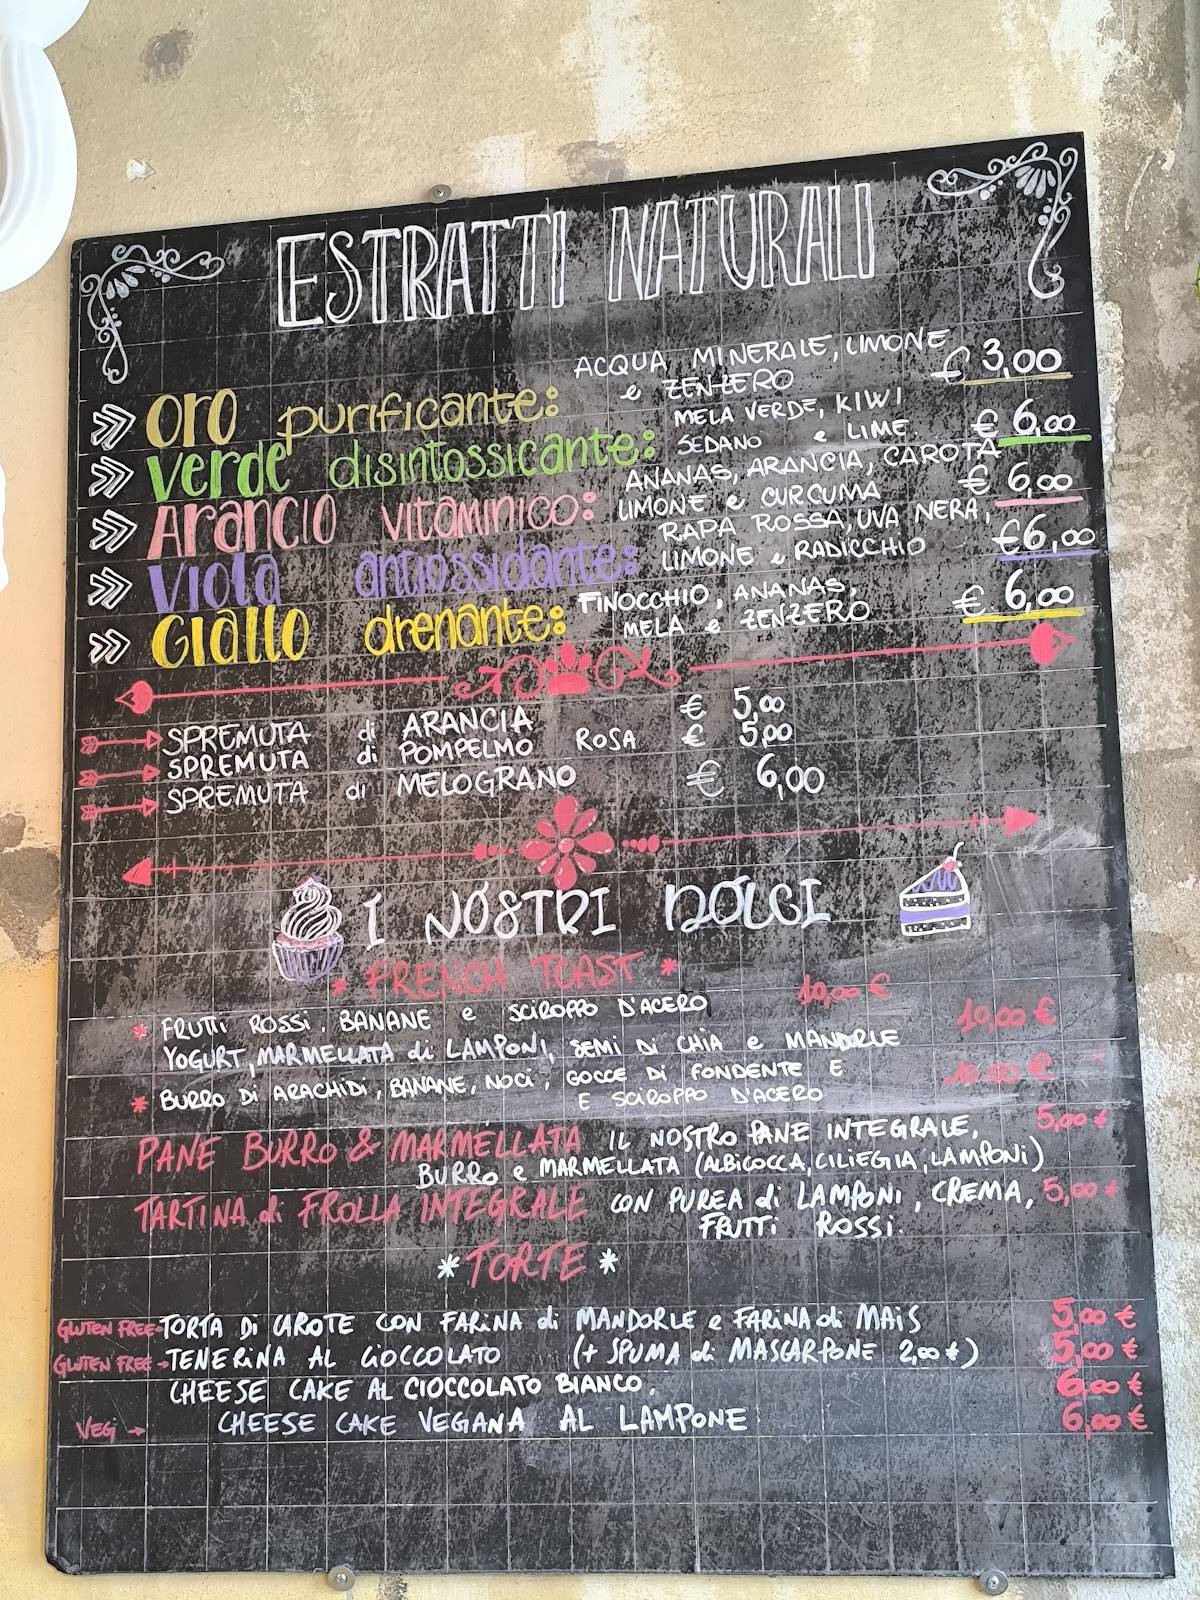 ESTRATTI NATURALI
ORO purificante: ACQUA MINERALE, LIMONE € 3,00
e ZENZERO
VERDE disintossicante: MELA VERDE, KIWI € 6,00
SEDANO e LIME.
ARANCIO vitaminico: ANANAS, ARANCIA, CAROTA € 6,00
LIMONE e CURCUMA
VIOLA antiossidante: RAPA ROSSA, UVA NERA, € 6,00
LIMONE e RADICCHIO
GIALLO drenante: FINOCCHIO, ANANAS, € 6,00
MELA e ZENZERO
SPREMUTA di ARANCIA € 5,00
SPREMUTA di POMPELMO ROSA € 5,00
SPREMUTA di MELOGRANO € 6,00
I NOSTRI DOLCI
* FRENCH TOAST *
* FRUTTI ROSSI, BANANE e SCIROPPO D'ACERO 10,00 €
YOGURT, MARMELLATA di LAMPONI, SEMI DI CHIA e MANDORLE 10,00 €
* BURRO DI ARACHIDI, BANANE, NOCI, GOCCE DI FONDENTE E 10.00 €
E SCIROPPO D'ACERO
PANE BURRO & MARMELLATA IL NOSTRO PANE INTEGRALE, 5,00 €
BURRO e MARMELLATA (ALBICOCCA, CILIEGIA, LAMPONI)
TARTINA di FROLLA INTEGRALE CON PUREA di LAMPONI, CREMA, 5,00 €
FRUTTI ROSSI.
* TORTE *
GLUTEN FREE → TORTA DI CAROTE CON FARINA di MANDORLE e FARINA di MAIS 5,00 €
GLUTEN FREE → TENERINA AL CIOCCOLATO (+ SPUMA di MASCARPONE 2,00 €) 5,00 €
CHEESE CAKE AL CIOCCOLATO BIANCO. 6,00 €
VEGI → CHEESE CAKE VEGANA AL LAMPONE 6,00 €